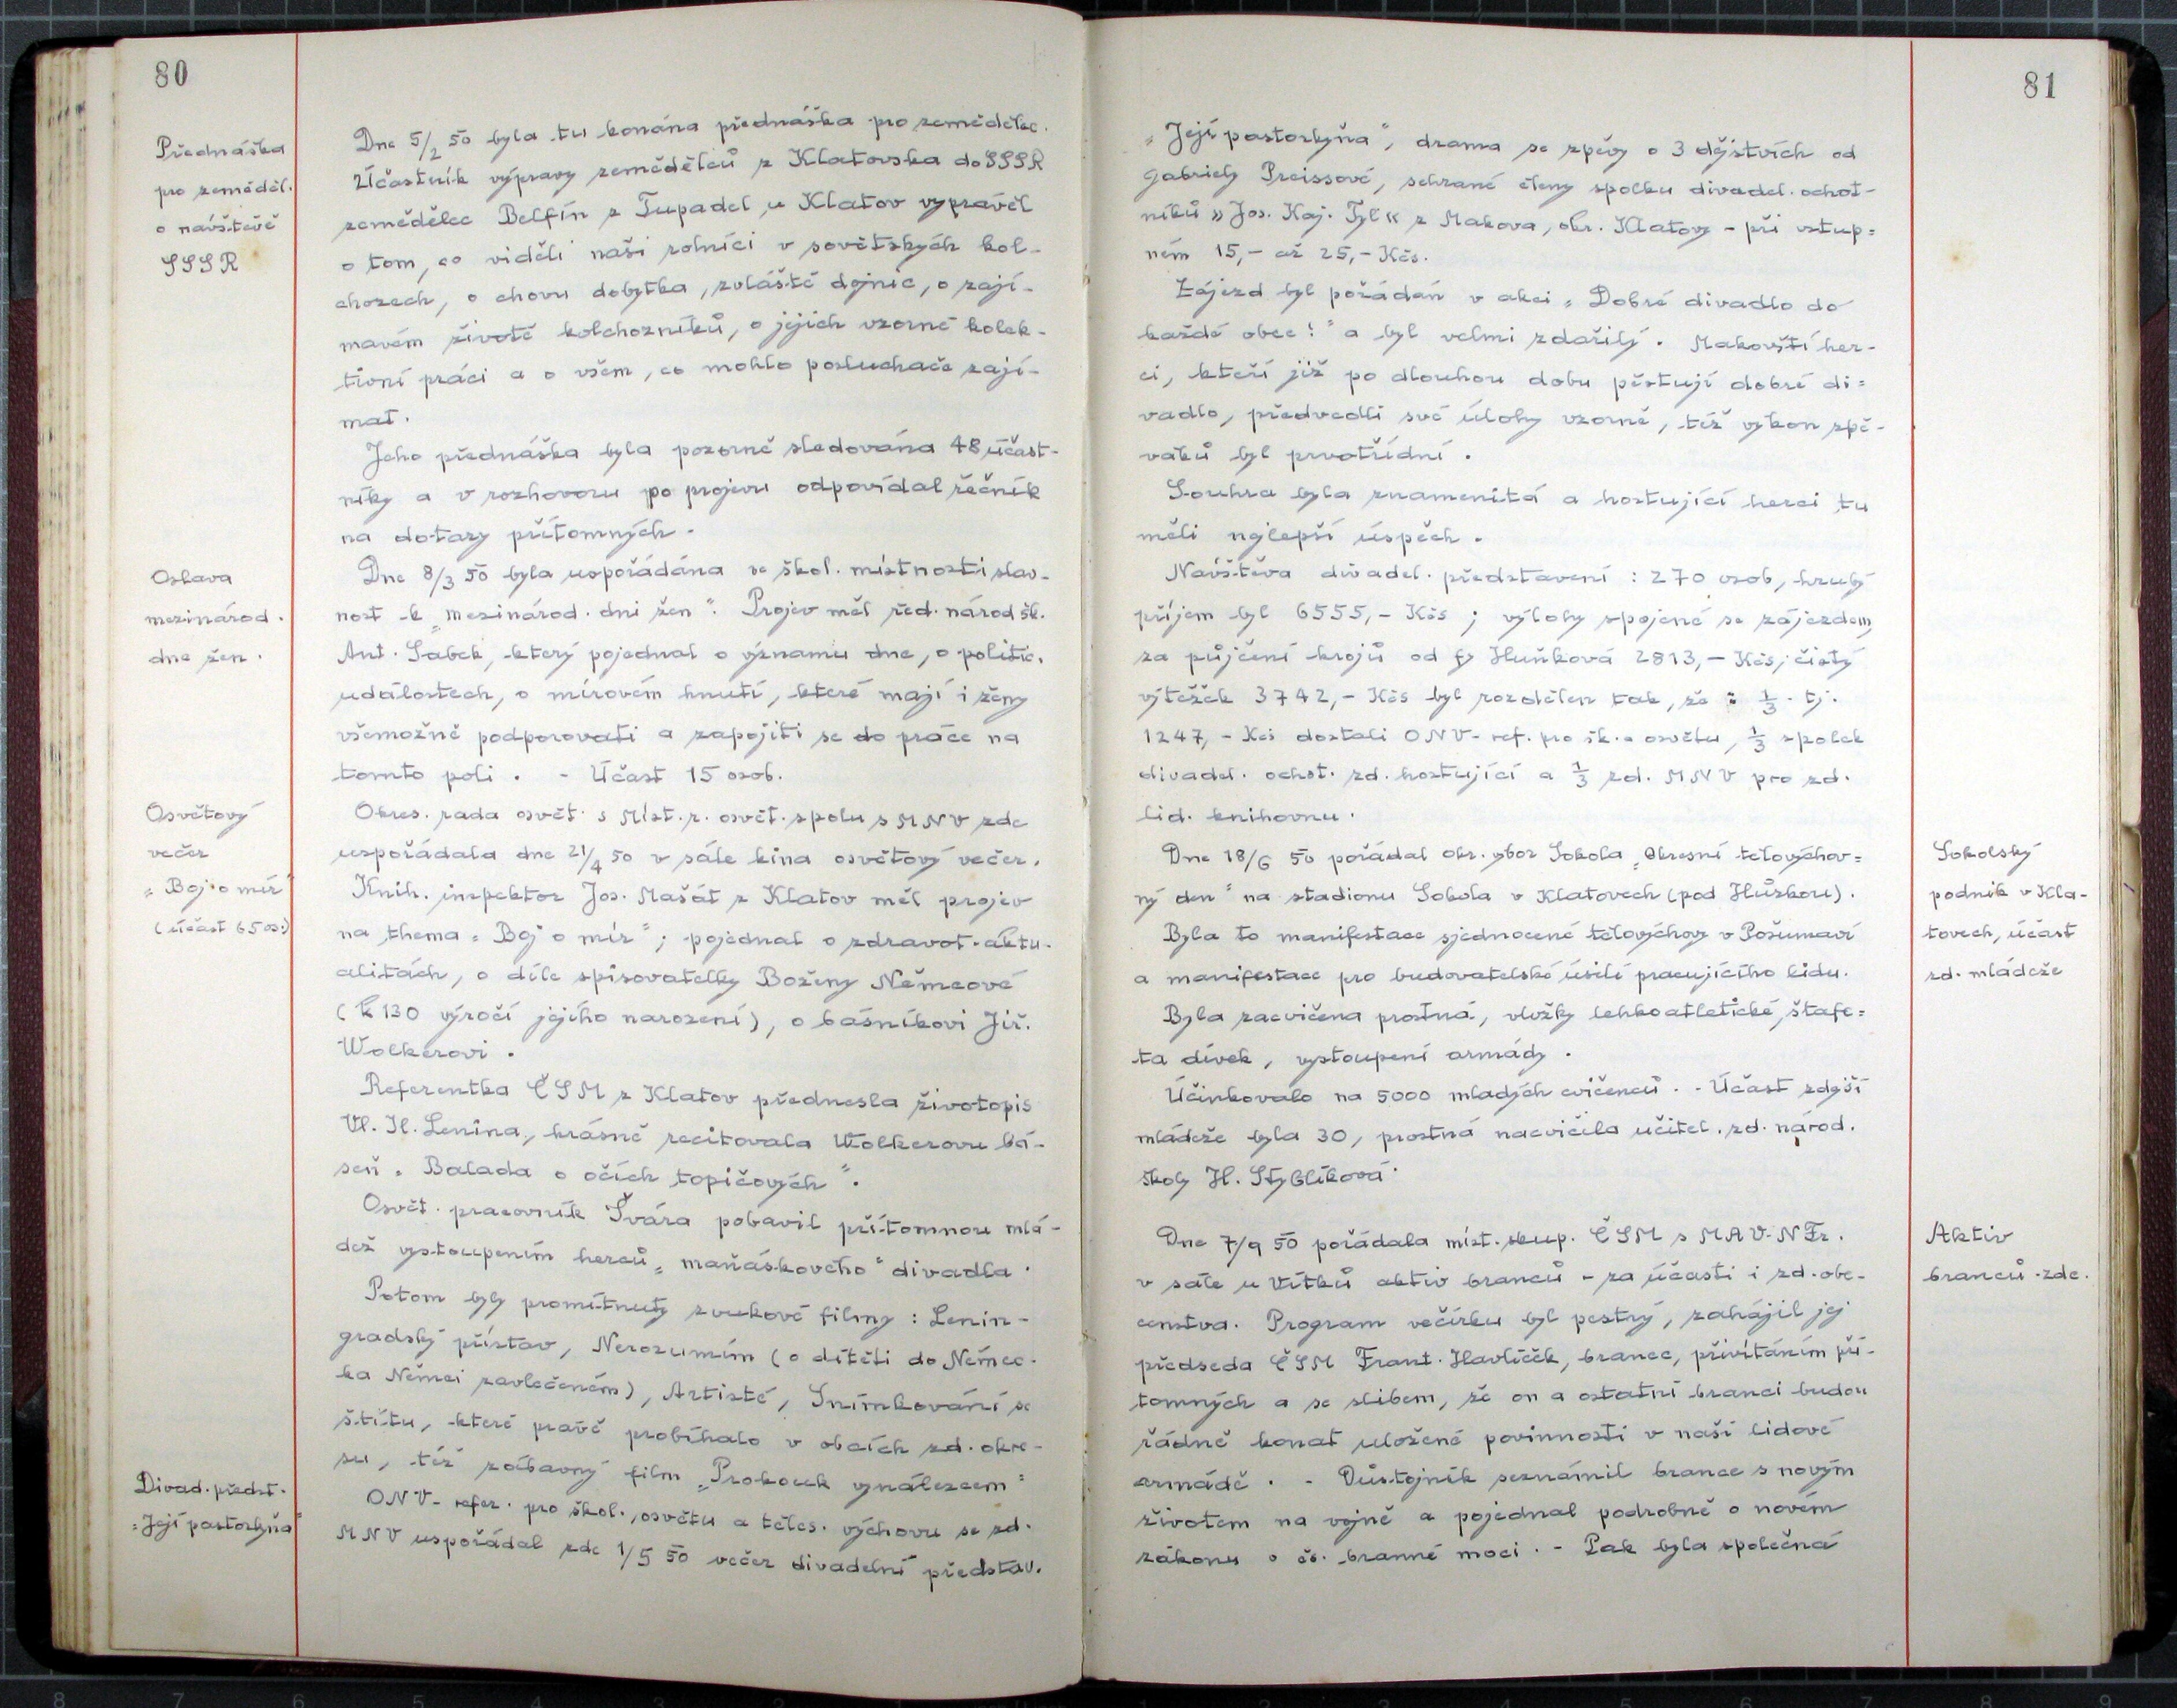 80
Přednáška
pro zeměděl.
o návštěvě
SSSR
Dne 5/2 50 byla tu konána přednáška pro zemědělec.
Účastník výpravy zemědělců z Klatovska do SSSR
zemědělec Belfín z Tupadel u Klatov vyprávěl
o tom, co viděli naši rolníci v sovětských kol-
chozech, o chovu dobytka, zvláště dojnic, o zají-
mavém životě kolchozníků, o jejich vzorné kolek-
tivní práci a o všem, co mohlo posluchače zají-
mat.
Jeho přednáška byla pozorně sledována 48 účast-
níky a v rozhovoru po projevu odpovídal řečník
na dotazy přítomných.
Oslava
mezinárod.
dne žen.
Dne 8/3 50 byla uspořádána ve škol. místnosti slav-
nost k „mezinárod. dni žen“. Projev měl řed. národ šk.
Ant. Sabek, který pojednal o významu dne, o politic.
událostech, o mírovém hnutí, které mají i ženy
všemožně podporovati a zapojiti se do práce na
tomto poli. - Účast 15 osob.
Osvětový
večer
„Boj o mír“
(účast 65 os.)
Okres. rada osvět. s Míst. r. osvět. spolu s MNV zde
uspořádala dne 21/4 50 v sále kina osvětový večer.
Knih. inspektor Jos. Mašát z Klatov měl projev
na thema „Boj o mír“; pojednal o zdravot. aktu-
alitách, o díle spisovatelky Boženy Němcové
(k 130 výročí jejího narození), o básníkovi Jiř.
Wolkerovi.
Referentka ČSM z Klatov přednesla životopis
Vl. Il. Lenina, krásně recitovala Wolkerovu bá-
seň „Balada o očích topičových“.
Osvět. pracovník Švára pobavil přítomnou mlá-
dež vystoupením herců „maňáskového“ divadla.
Potom byly promítnuty zvukové filmy: Lenin-
gradský přístav, Nerozumím (o dítěti do Němec-
ka Němci zavlečeném), Artisté, Snímkování ze
štítu, které právě probíhalo v obcích zd. okre-
su, též zábavný film „Prokouk vynálezcem“
Divad. předst.
„Její pastorkyňa“
ONV- refer. pro škol., osvětu a těles. výchovu se zd.
MNV uspořádal zde 1/5 50 večer divadelní představ.
81
„Její pastorkyňa“, drama se zpěvy o 3 dějstvích od
Gabriely Preissové, sehrané členy spolku divadel. ochot-
níků »Jos. Kaj. Tyl« z Makova, okr. Klatovy - při vstup=
ném 15,- až 25,- Kčs.
Zájezd byl pořádán v akci „Dobré divadlo do
každé obce!“ a byl velmi zdařilý. Makovští her-
ci, kteří již po dlouhou dobu pěstují dobré di=
vadlo, předvedli své úlohy vzorně, též výkon zpě-
váků byl prvotřídní.
Souhra byla znamenitá a hostující herci tu
měli nejlepší úspěch.
Návštěva divadel. představení: 270 osob, hrubý
příjem byl 6555,- Kčs; výlohy spojené se zájezdem,
za půjčení krojů od fy Huňková 2813,- Kčs; čistý
výtěžek 3742,- Kčs byl rozdělen tak, že : 1/3 tj.
1247,- Kčs dostali ONV- ref. pro šk. a osvětu, 1/3 spolek
divadel. ochot. zd. hostující a 1/3 zd. MNV pro zd.
lid. knihovnu.
Dne 18/6 50 pořádal okr. výbor Sokola „Okresní tělovýchov=
ný den“ na stadionu Sokola v Klatovech (pod Hůrkou).
Byla to manifestace sjednocené tělovýchovy v Pošumaví
a manifestace pro budovatelské úsilí pracujícího lidu.
Byla zacvičena prostná, vložky lehkoatletické, štafe=
ta dívek, vystoupení armády.
Účinkovalo na 5000 mladých cvičenců. - Účast zdejší
mládeže byla 30, prostná nacvičila učitel. zd. národ.
školy Hl. Styblíková.
Sokolský
podnik v Kla-
tovech, účast
zd. mládeže
Dne 7/9 50 pořádala míst. skup. ČSM s MAV-NFr.
v sále u Vítků aktiv branců - za účasti i zd. obe-
censtva. Program večírku byl pestrý, zahájil jej
předseda ČSM Frant. Havlíček, branec, přivítáním pří-
tomných a se slibem, že on a ostatní branci budou
řádně konat uložené povinnosti v naší lidové
armádě. - Důstojník seznámil brance s novým
životem na vojně a pojednal podrobně o novém
zákonu o čs. branné moci. - Pak byla společná
Aktiv
branců zde.